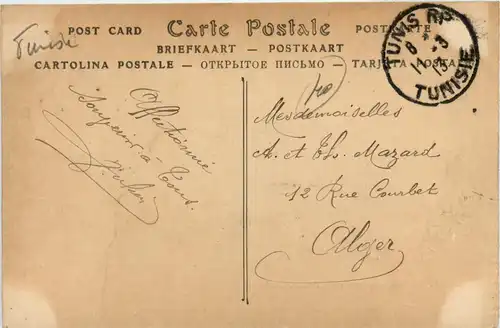 Tunisie
POST CARD Carte Postale POSTKARTE
BRIEFKAART — POSTKAART
CARTOLINA POSTALE — ОТКРЫТОЕ ПИСЬМО — TARJETA POSTAL
TUNIS RP
8 * 3
11 13
TUNISIE
Affectionné
Souvenir à
Tous.
Mesdemoiselles
A. et Th. Mazard
12 Rue Courbet
Alger